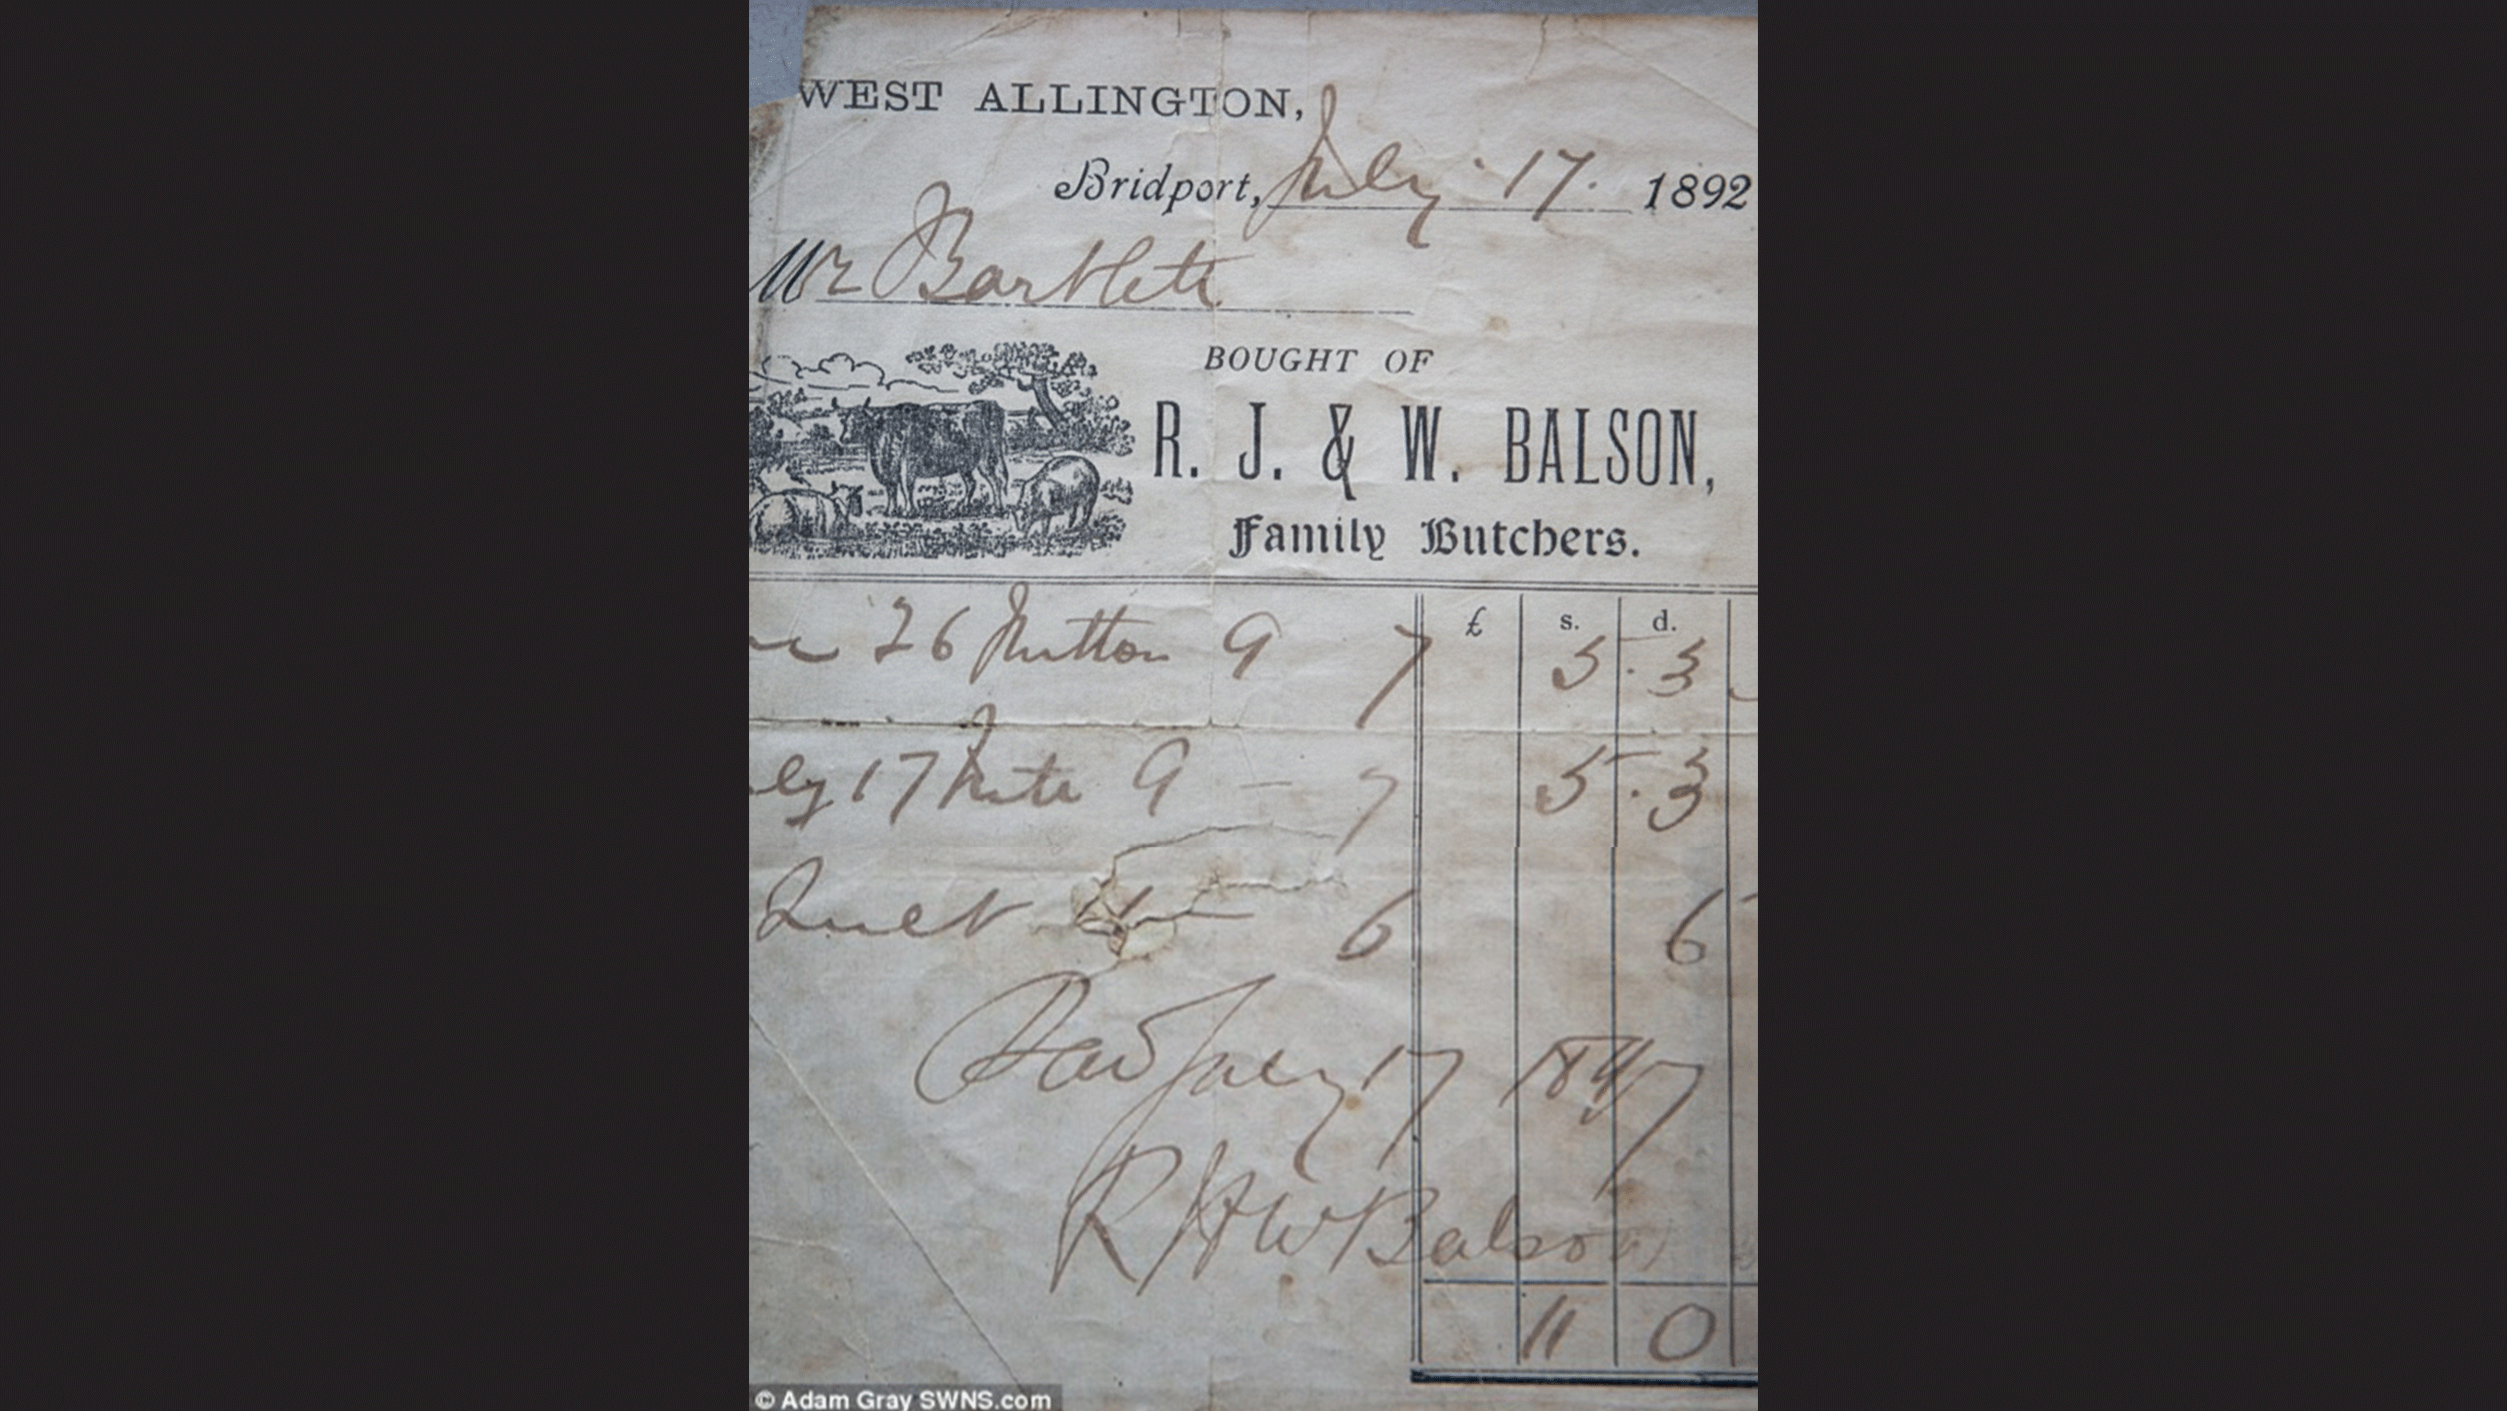 WEST ALLINGTON,
Bridport, July 17. 1892
Mr Bartlett
BOUGHT OF
R. J. & W. BALSON,
Family Butchers.
£ s. d.
26 Mutton 9 7 5. 3
17 9 - 7 5. 3
Suet 6 6
July 17
R J & W Balson
11 0
© Adam Gray SWNS.com